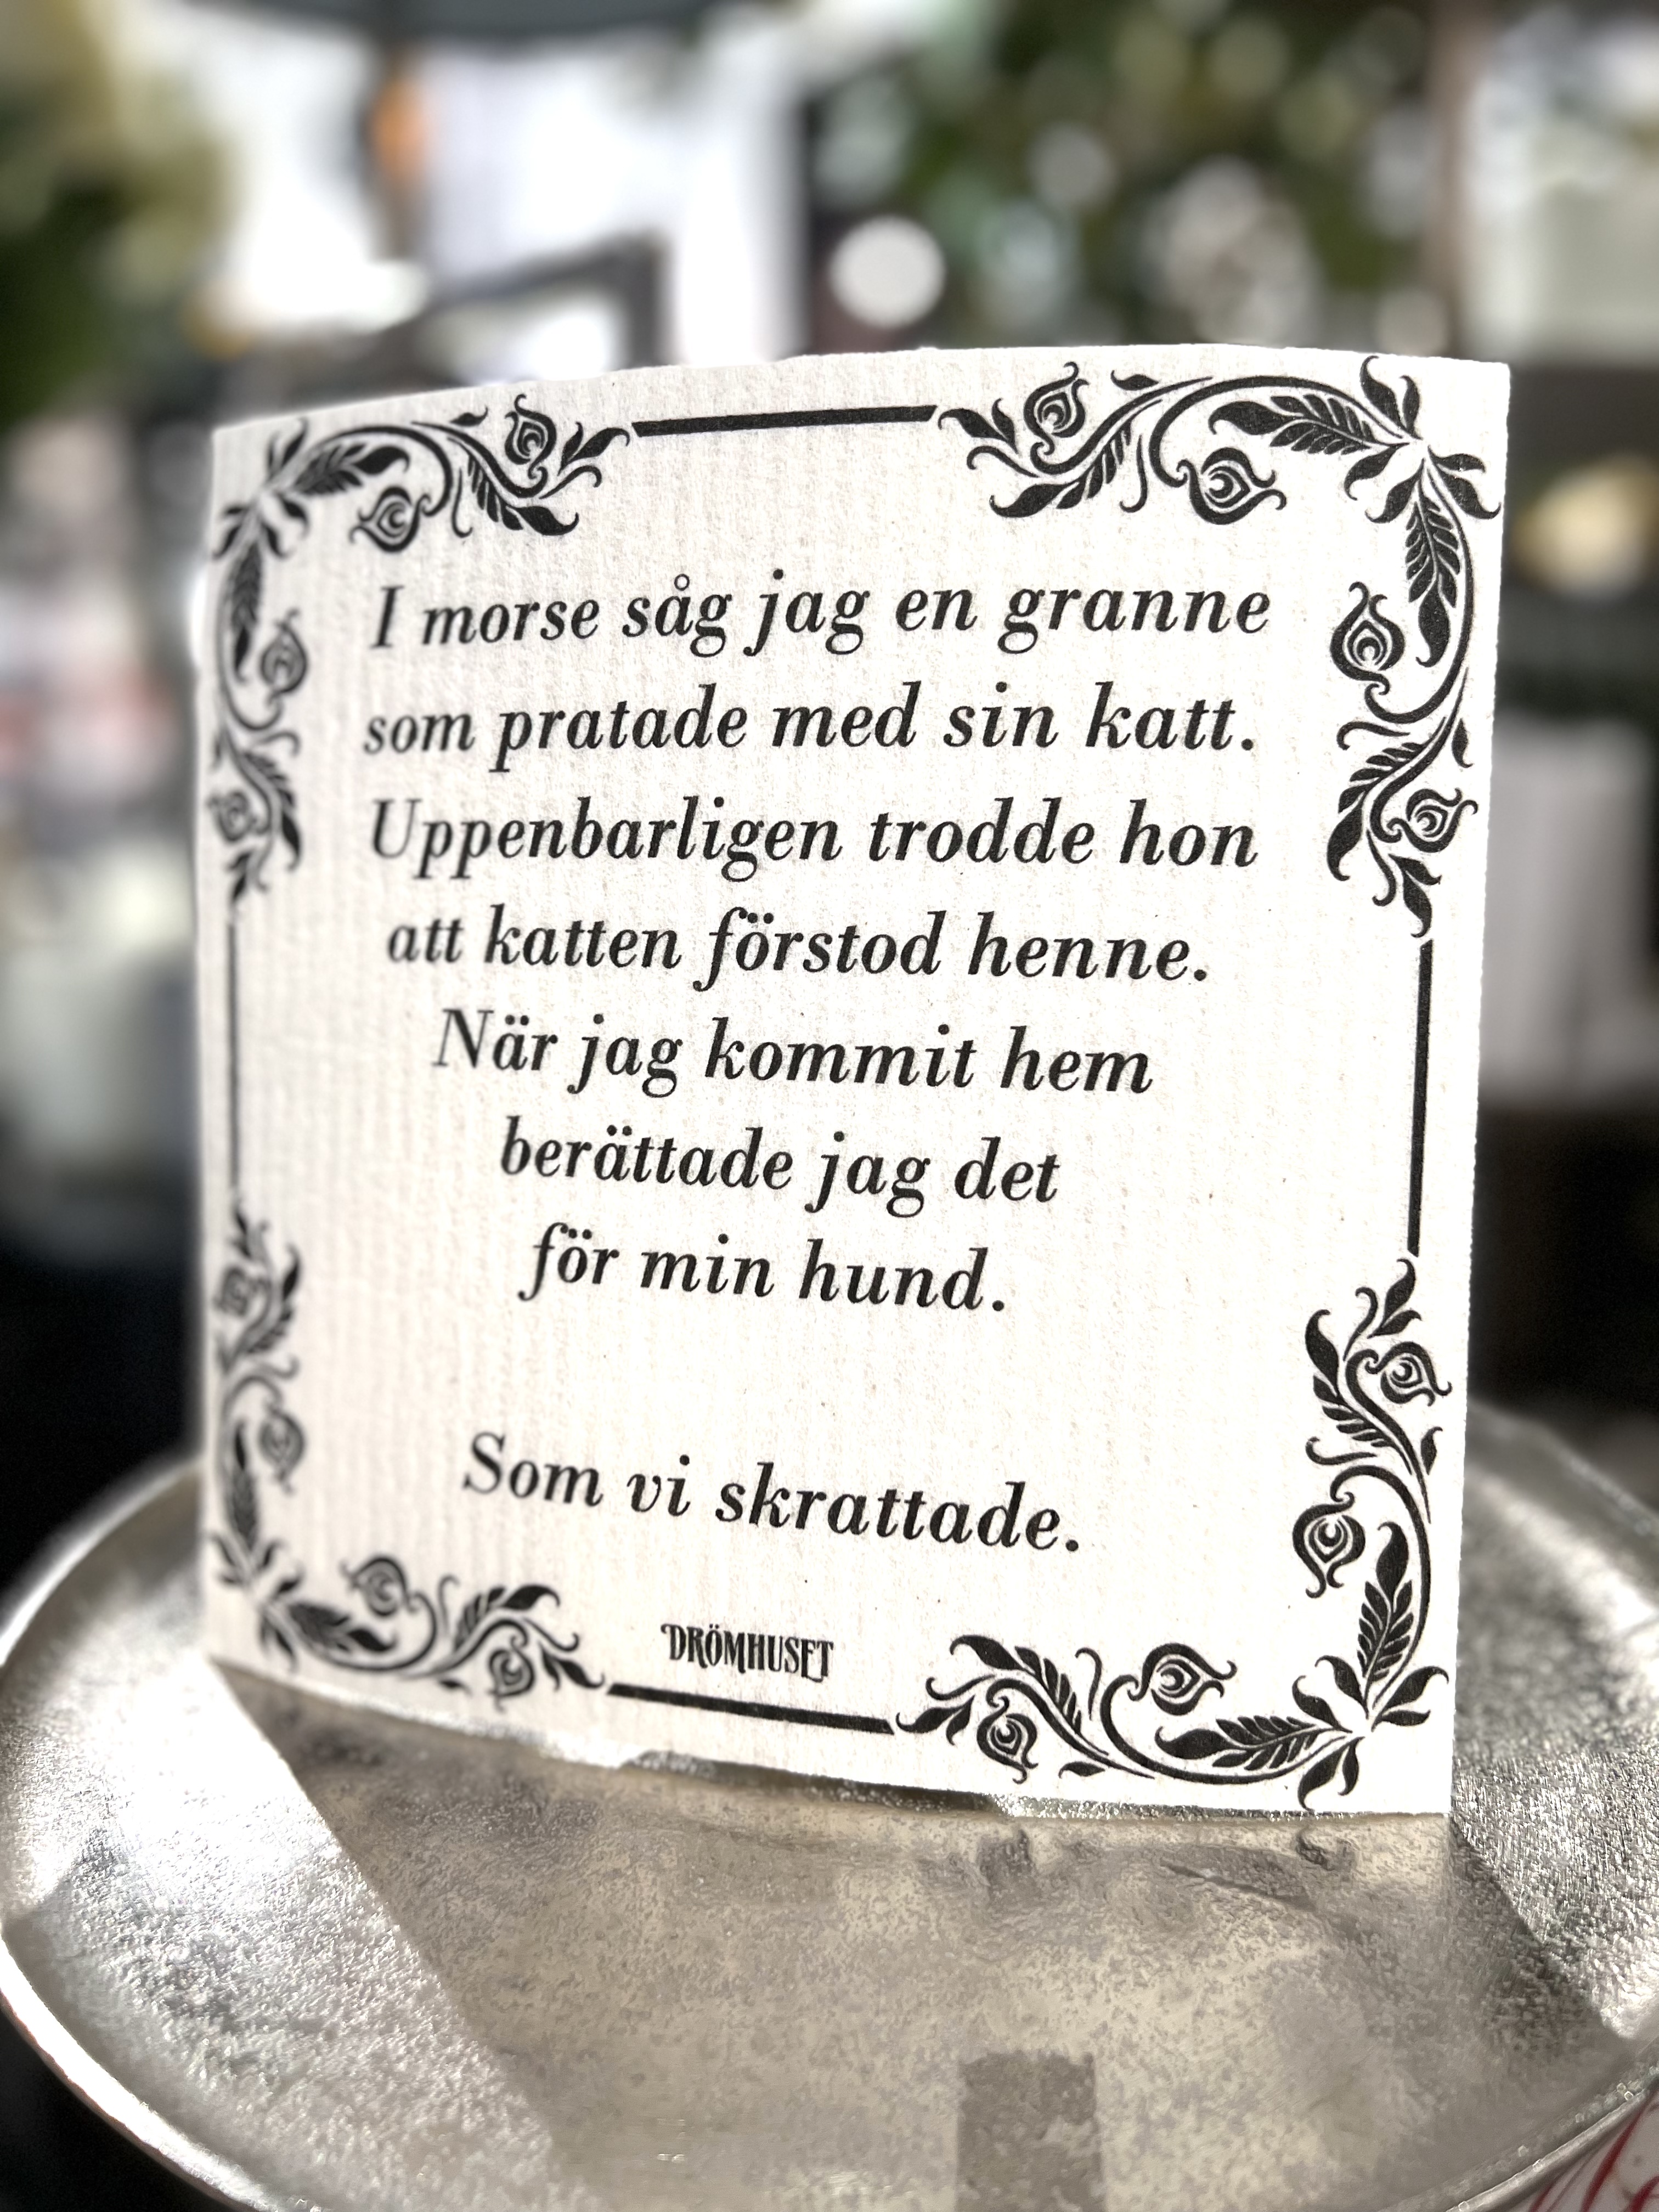 I morse såg jag en granne
som pratade med sin katt.
Uppenbarligen trodde hon
att katten förstod henne.
När jag kommit hem
berättade jag det
för min hund.
Som vi skrattade.
DRÖMHUSET